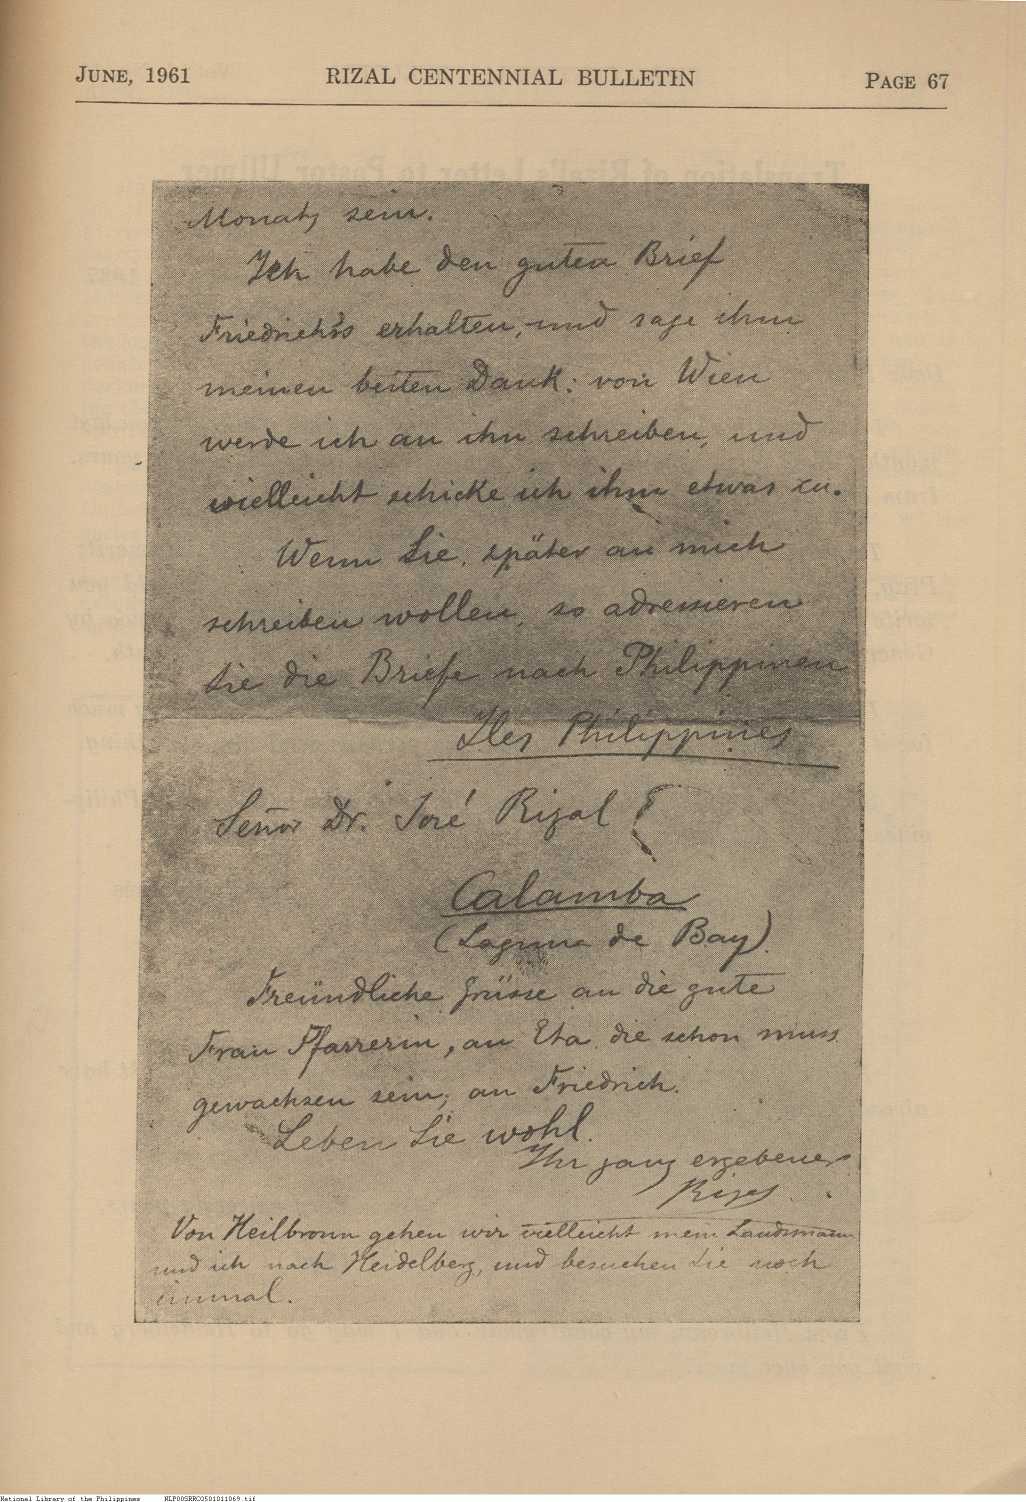 JUNE, 1961 RIZAL CENTENNIAL BULLETIN PAGE 67
Monats sein.
Ich habe den guten Brief
Friedrich's erhalten, und sage ihm
meinen besten Dank: von Wien
werde ich an ihn schreiben, und
vielleicht schicke ich ihm etwas zu.
Wenn Sie später an mich
schreiben wollen, so adressieren
Sie die Briefe nach Philippinen
Iles Philippines
Señor Dr. José Rizal
Calamba
(Laguna de Bay)
Freündliche Grüsse an die gute
Frau Pfarrerin, an Eta die schon muss
gewachsen sein, an Friedrich.
Leben Sie wohl.
Ihr ganz ergebener
Rizal
Von Heilbronn gehen wir vielleicht mein Landsmann
und ich nach Heidelberg, und besuchen Sie noch
einmal.
National Library of the Philippines NLP00SRRC0501011069.tif